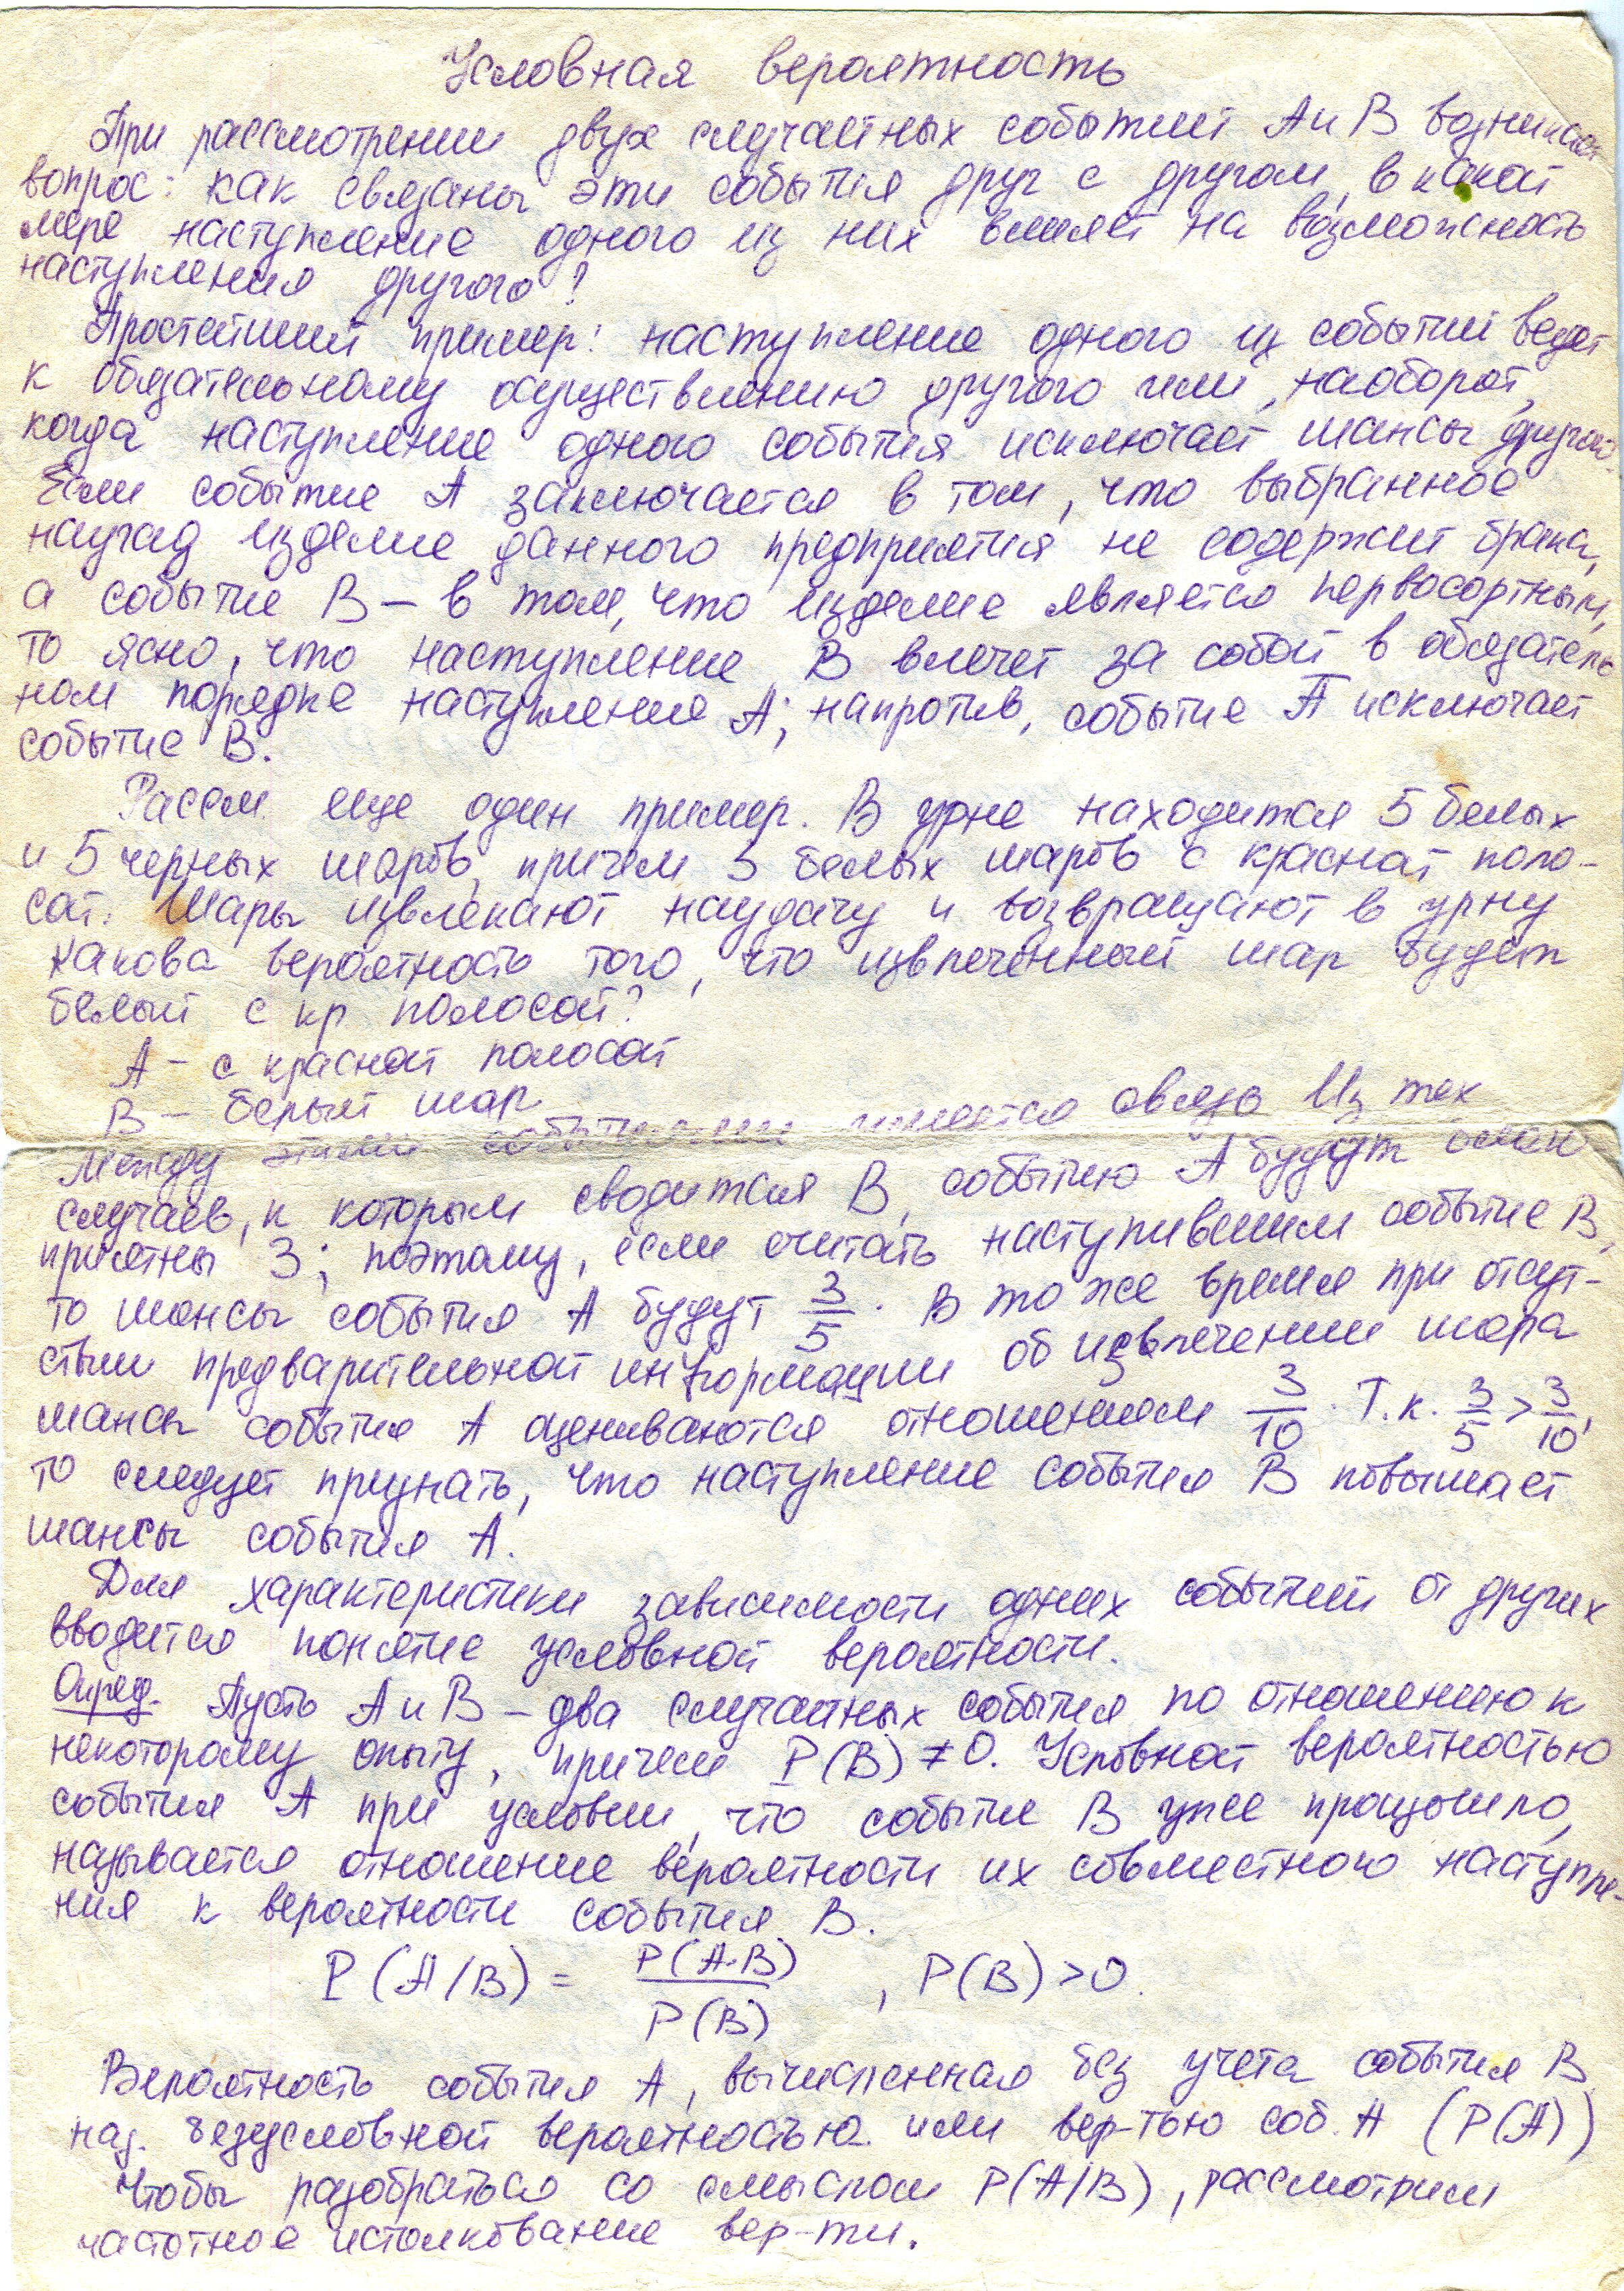 Условная вероятность
При рассмотрении двух случайных событий А и В возникает
вопрос: как связаны эти события друг с другом, в какой
мере наступление одного из них влияет на возможность
наступления другого?
Простейший пример: наступление одного из событий ведет
к обязательному осуществлению другого или, наоборот,
когда наступление одного события исключает шансы другого.
Если событие А заключается в том, что выбранное
наугад изделие данного предприятия не содержит брака,
а событие В – в том, что изделие является первосортным,
то ясно, что наступление В влечет за собой в обязатель
ном порядке наступление А; напротив, событие A̅ исключает
событие В.
Рассм. еще один пример. В урне находится 5 белых
и 5 черных шаров, причем 3 белых шаров с красной поло-
сой. Шары извлекают наудачу и возвращают в урну
Какова вероятность того, что извлеченный шар будет
белый с кр полосой?
А – с красной полосой
В – белый шар
Между этими событиями имеется связь Из тех
случаев, к которым сводится В, событию А будут благо
приятны 3; поэтому, если считать наступившим событие В,
то шансы события А будут 3/5. В то же время при отсут-
ствии предварительной информации об извлечении шара
шансы события А оцениваются отношением 3/10. Т.к. 3/5 > 3/10,
то следует признать, что наступление события В повышает
шансы события А.
Для характеристики зависимости одних событий от других
вводится понятие условной вероятности.
Опред. Пусть А и В – два случайных события по отношению к
некоторому опыту, причем P(B) ≠ 0. Условной вероятностью
события А при условии, что событие В уже произошло,
называется отношение вероятности их совместного наступле-
ния к вероятности события В.
P(A/B) = P(A·B)/P(B), P(B) > 0.
Вероятность события А, вычисленная без учета события В
наз. безусловной вероятностью или вер-тью соб. А (P(A))
Чтобы разобраться со смыслом P(A/B), рассмотрим
частотное истолкование вер-ти.